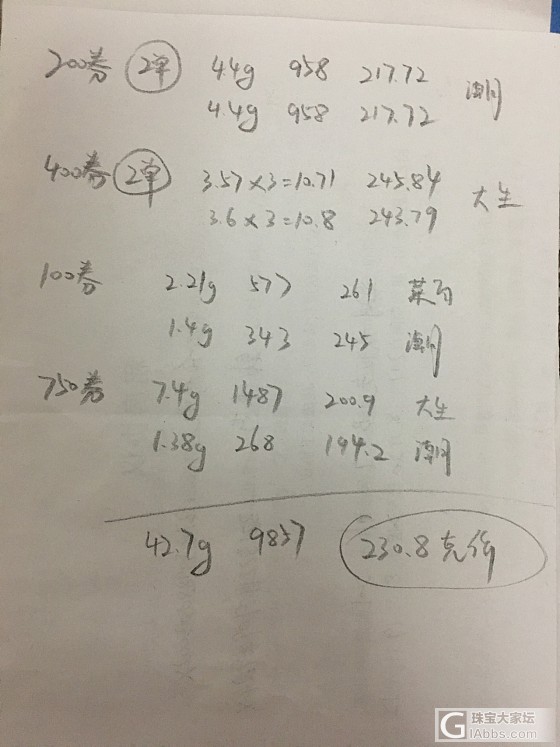 200券 2单 4.4g 958 217.72
4.4g 958 217.72 潮
400券 2单 3.57×3=10.71 245.84
3.6×3=10.8 243.79 大生
100券 2.21g 577 261 菜百
1.4g 343 245 潮
750券 7.4g 1487 200.9 大生
1.38g 268 194.2 潮
42.7g 9857 230.8克价
珠宝大家坛
iAbbs.com